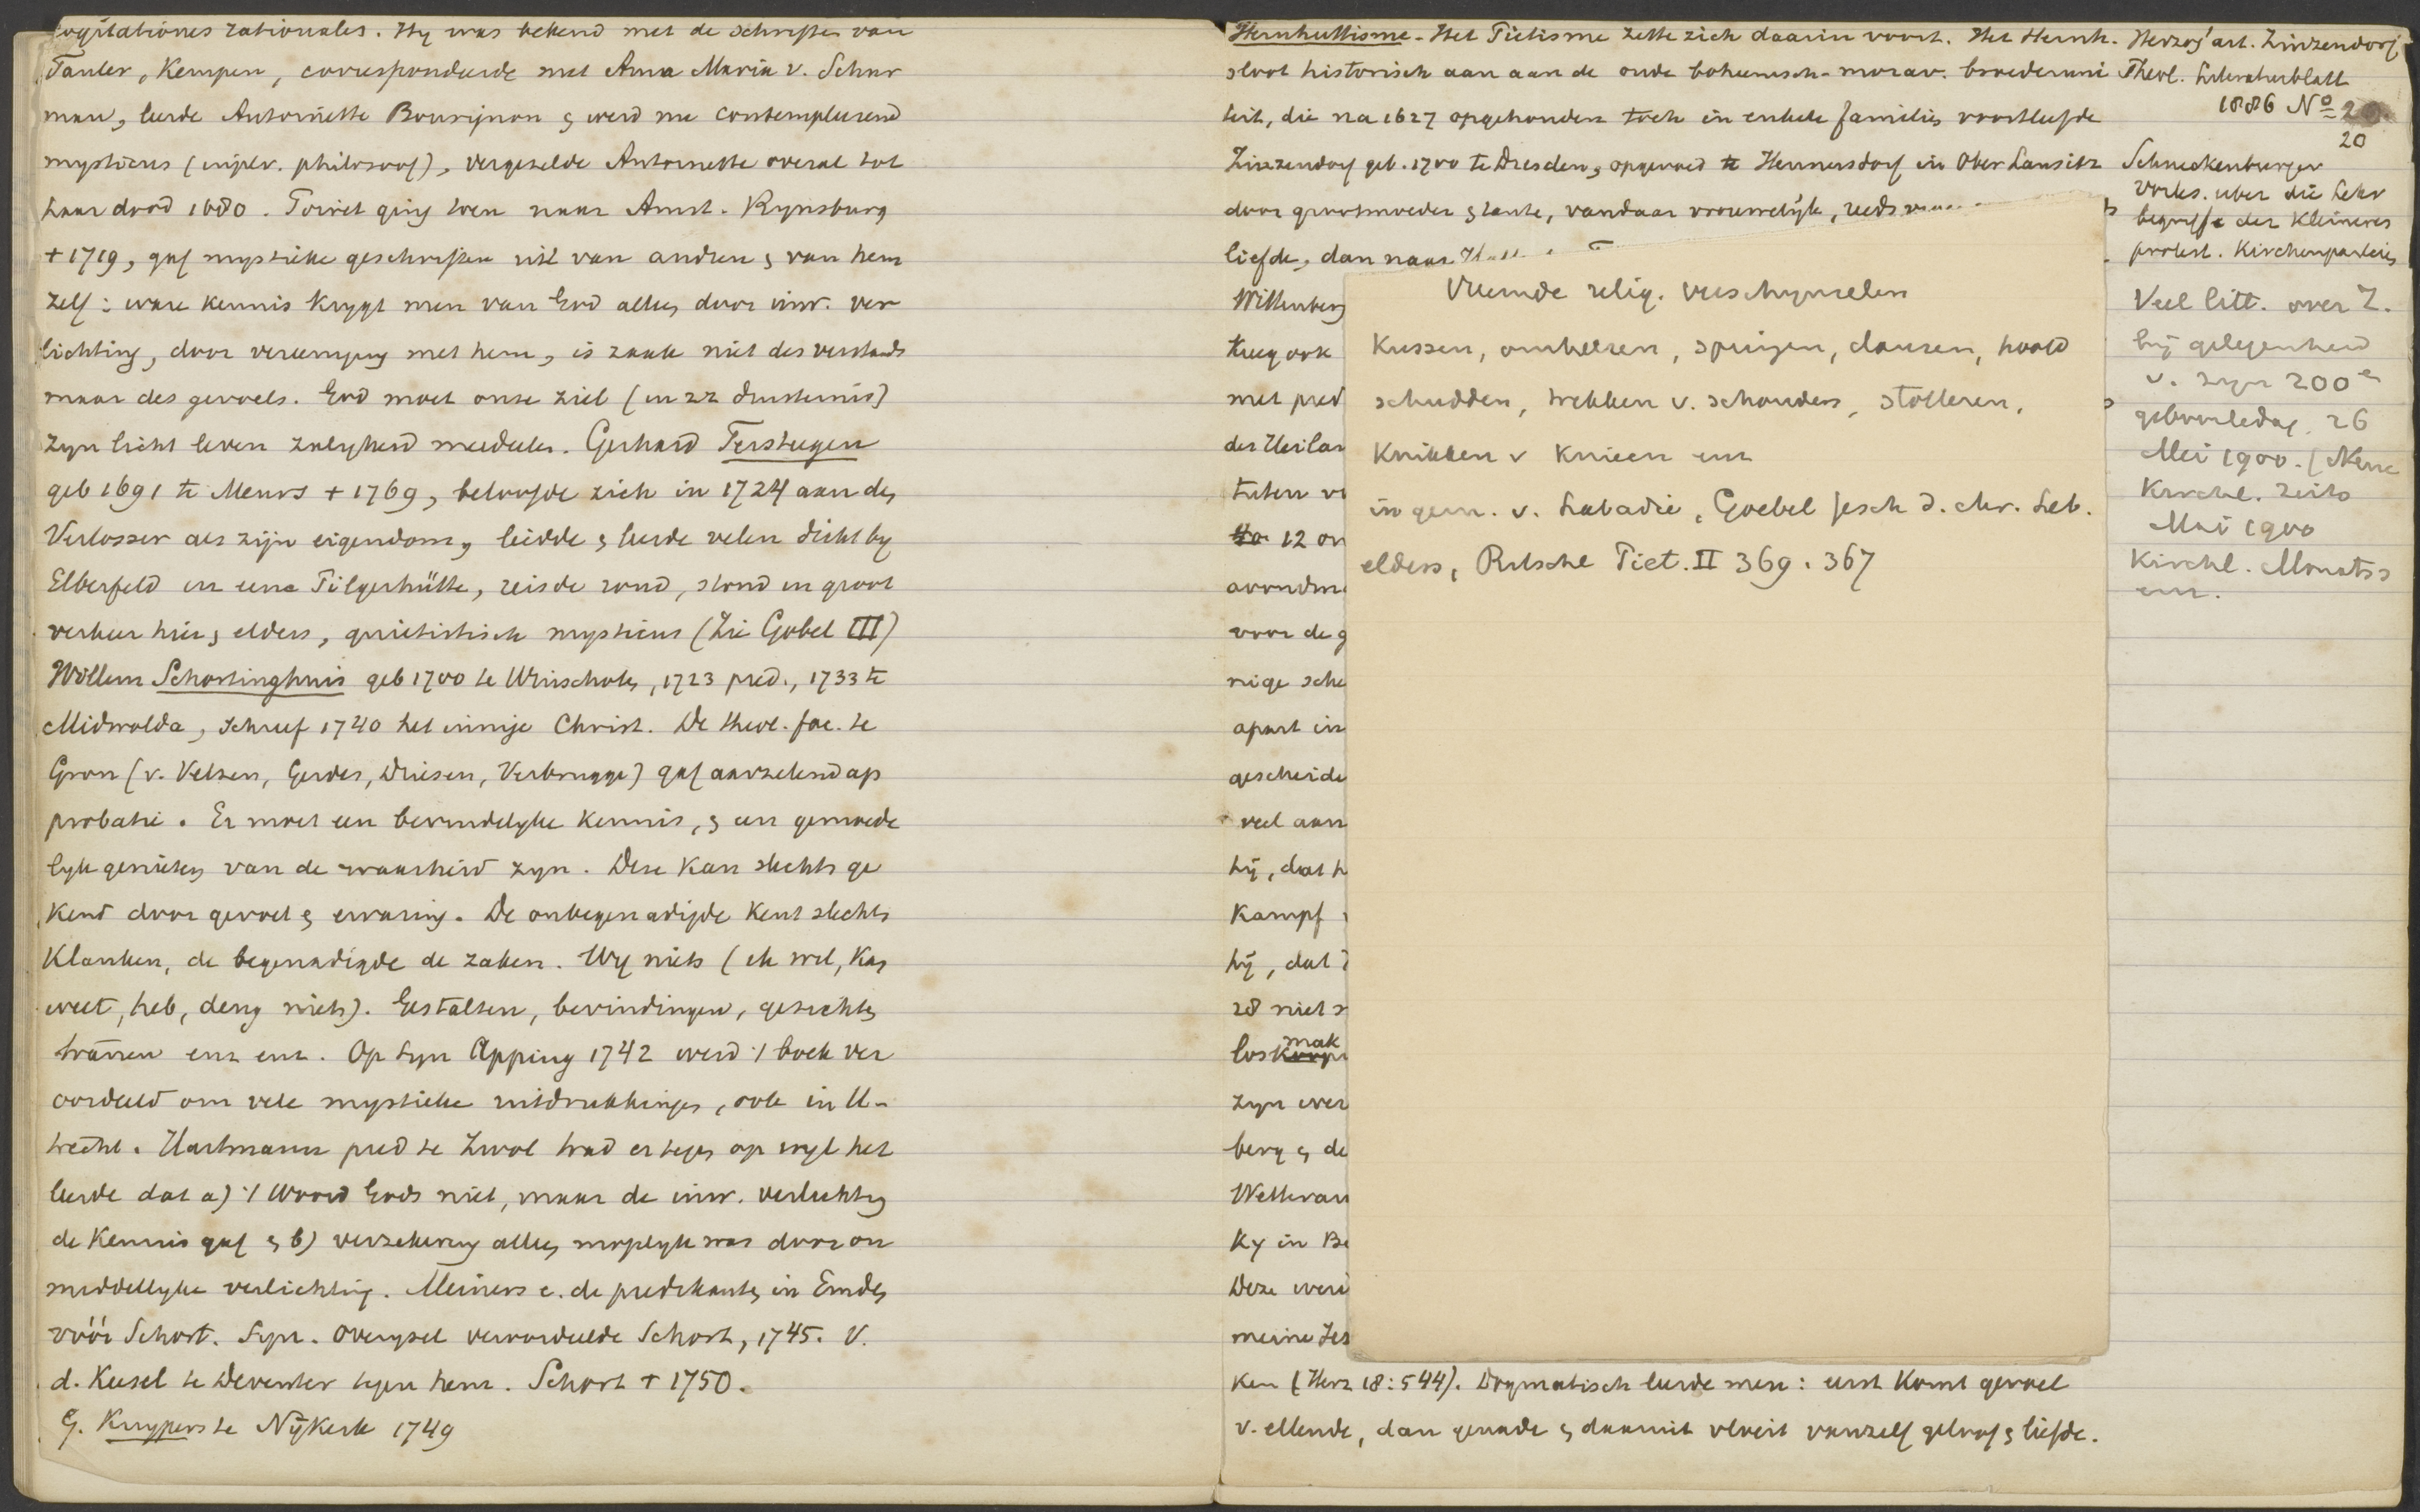 cogitationes rationales. Hy was bekend met de schriften van
Tauler, Kempen, correspondeerde met Anna Maria v. Schur
man, leerde Antoinette Bourignon & werd nu contemplerend
mysticus (in plv. philosoof), vergezelde Antoinette overal tot
haar dood 1680. Poiret ging toen naar Amst. Rynsburg
+ 1719, gaf mystieke geschriften uit van andren & van hem
zelf: ware kennis krygt men van God alleen door inw. ver
lichting, door vereeniging met hem, is zaak niet des verstands
maar des gevoels. God moet onze ziel (in zz duisternis)
zyn licht leven zaligheid meedeelen. Gerhard Tersteegen
geb 1691 te Meurs + 1769, beloofde zich in 1724 aan den
Verlosser als zijn eigendom, leidde & leerde velen dicht by
Elberfeld in eene Pilgerhütte, reisde rond, stond in groot
verkeer hier & elders, quietistisch mysticus (Zie Göbel III)
Willem Schortinghuis geb 1700 te Winschoten, 1723 pred., 1733 te
Midwolda, schreef 1740 het innige Christ. De theol. fac. te
Gron (v. Velzen, Gerdes, Driesen, Verbrugge) gaf aarzelend ap
probatie. Er moet een bevindelyke kennis, & een gemoede
lyk genieten van de waarheid zyn. Deze kan slechts ge
kend door gevoel & ervaring. De onbegenadigde kent slechts
klanken, de begenadigde de zaken. Vyf niets (ik wil, kan
weet, heb, deug niets). Gestalten, bevindingen, gezichten
tranen enz enz. Op Syn Apping 1742 werd 't boek ver
oordeeld om vele mystieke uitdrukkingen, ook in U-
trecht. Hartmann pred te Zwol trad er tegen op wyl het
leerde dat a) 't Woord Gods niet, maar de inw. verlichting
de kennis gaf & b) verzekering alleen mogelyk was door on
middellyke verlichting. Meiners e. de predikanten in Emden
vóór Schort. Syn. Overysel veroordeelde Schort, 1745. V.
d. Keesel te Deventer tegen hem. Schort + 1750.
G. Kuypers te Nijkerk 1749
Hernhuttisme. Het Pietisme zette zich daarin voort. Het Hernh.
sloot historisch aan aan de oude boheemsch-morav. broederuni
teit, die na 1627 opgehouden toch in enkele families voortleefde
Zinzendorf geb. 1700 te Dresden, opgevoed te Hennersdorf in Ober Lausitz
door grootmoeder & tante, vandaar vrouwelijk, reeds
liefde, dan naar
Wittenberg
kreeg ook
met pred
der Heilan
tuten
12 on
avondm
voor de g
nige sche
apart in
gescheide
veel aan
hij, dat h
kampf
hij, dat
28 niet
los mak
zyn wer
berg & de
Wetterau
ky in Be
Deze werd
meine
ken (Herz 18:544). Dogmatisch leerde men: eerst komt gevoel
v. ellende, dan genade & daaruit vloeit vanzelf geloof & liefde.
Vreemde relig. verschynselen
Kussen, omhelzen, springen, dansen, hoofd
schudden, trekken v. schouders, stotteren,
Knikken v knieen enz
in gem. v. Labadie, Goebel Gesch d. chr. Leb.
elders, Ritschl Piet. II 369. 367
Herzog' art. Zinzendorf
Theol. Literaturblatt
1886 No 20
20
Schneckenburger
Vorles. uber die Lehr
begriffe der Kleineren
protest. Kirchenparteien
Veel litt. over Z.
bij gelegenheid
v. zyn 200e
geboortedag. 26
Mei 1900. (Neue
Kirchl. Zeits
Mai 1900
Kirchl. Monatss
enz.